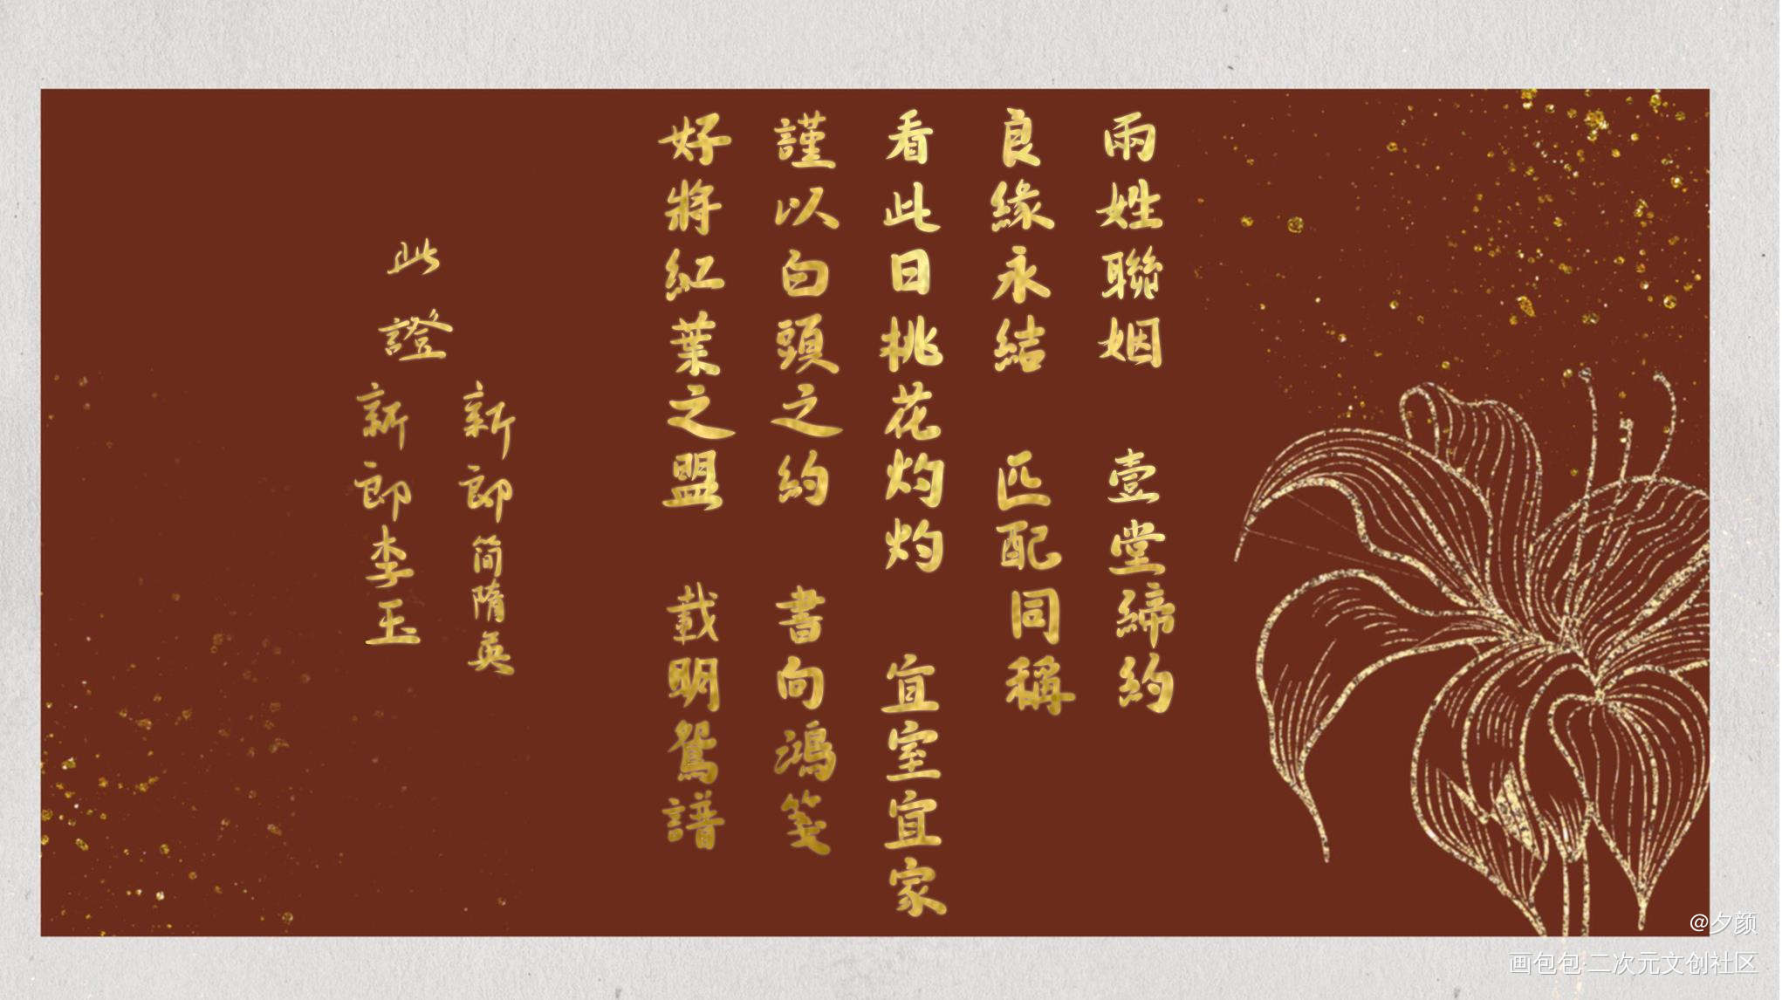 雨姓聯姻 壹堂締約
良緣永結 匹配同稱
看此日桃花灼灼 宜室宜家
謹以白頭之約 書向鴻箋
好將紅葉之盟 載明鴛譜
此證
新郎简隋英
新郎李玉
@夕颜
画包包·二次元文创社区